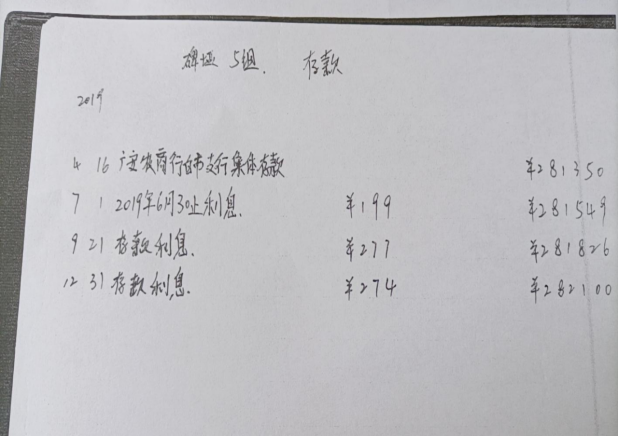 碑垭 5组. 存款
2019
4 16 广安农商行白市支行集体存款 ¥281350
7 1 2019年6月30止利息. ¥199 ¥281549
9 21 存款利息. ¥277 ¥281826
12 31 存款利息. ¥274 ¥282100